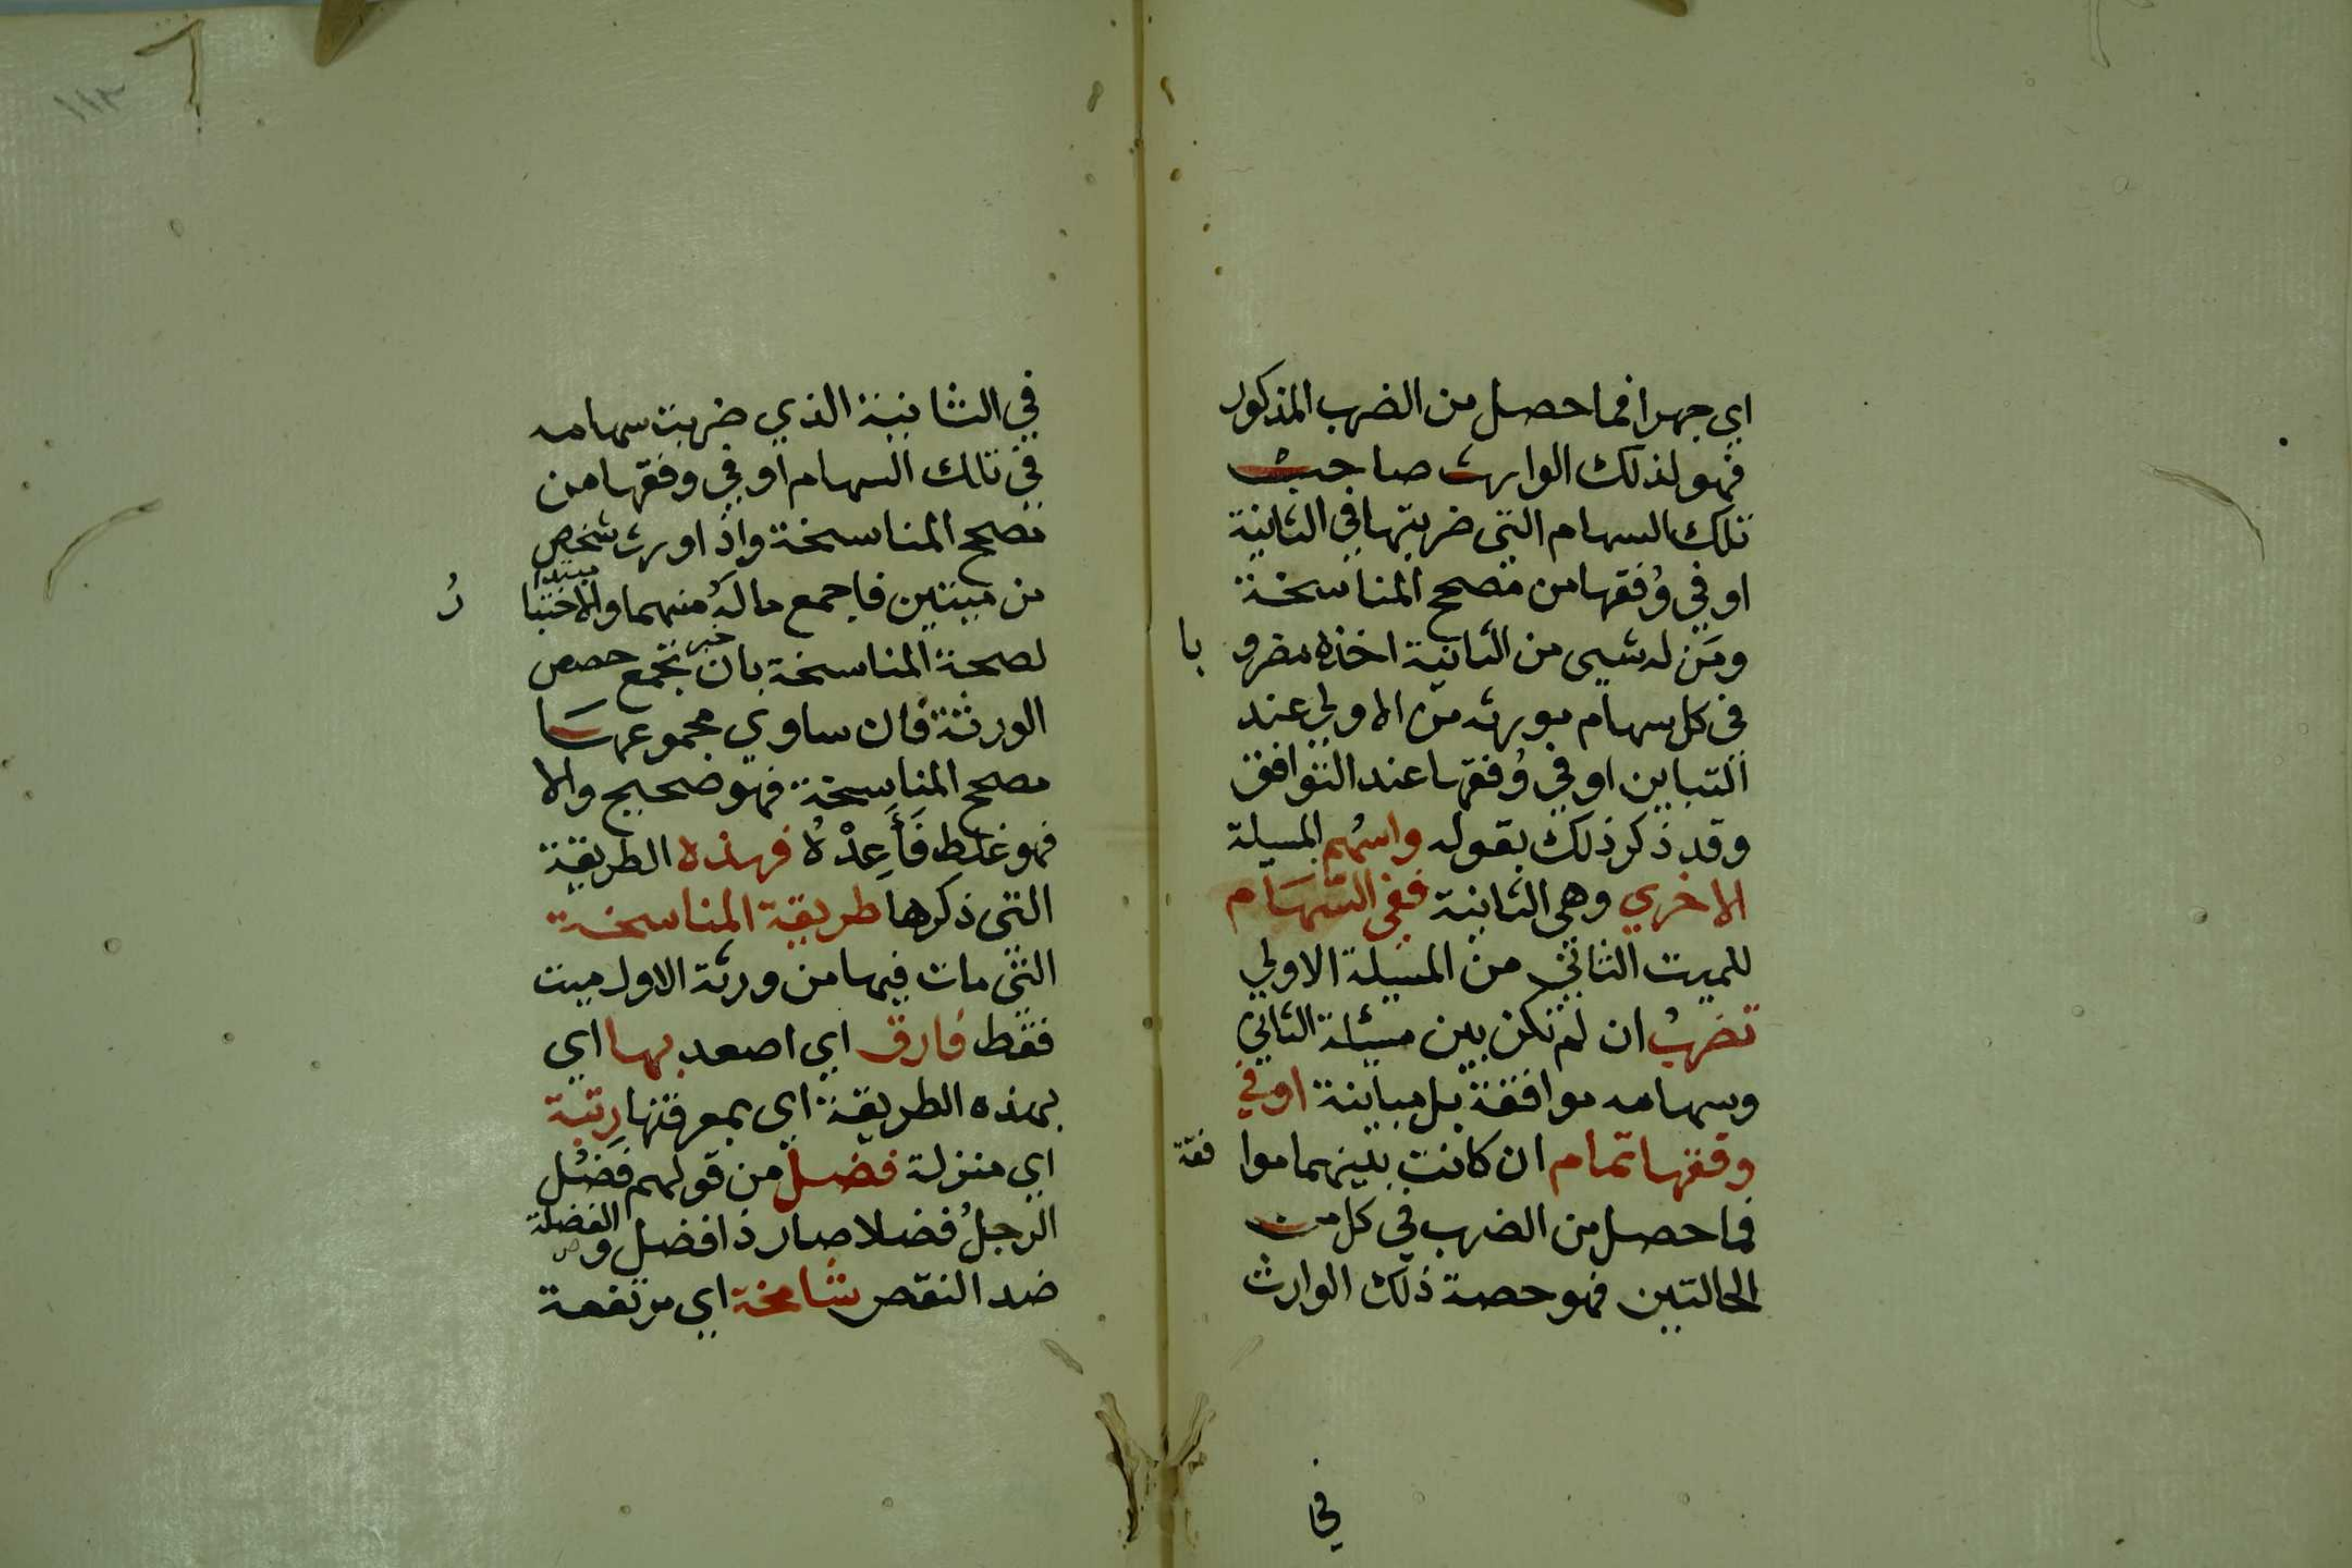 اي جهرا فما حصل من الضرب المذكور
فهو لذلك الوارث صاحب
تلك السهام التي ضربتها في الثانية
او في وُفقها من مصحح المناسخة
ومَن له شيى من الثانية اخذه مضروبا
في كل سهام مورثه من الاولي عند
التباين او في وُفقها عند التوافق
وقد ذكر ذلك بقوله واسْهُم المسيلة
الاخري وهي الثانية ففي السّهَام
للميت الثاني من المسيلة الاولي
تضربُ ان لم تكن بين مسئلة الثاني
وسهامه موافقة بل مباينة او في
وفقها تمام ان كانت بينهما موافقة
فما حصل من الضرب في كل من
الحالتين فهو حصة ذلك الوارث
في
١١٢
في الثانية الذي ضربت سهامه
في تلك السهام او في وفقها من
مصحح المناسخة واذا ورث شخص
من ميتين فاجمع ما لهُ منهما والاختبارُ
مبتدا
لصحة المناسخة بان تجمع حصص
خبر
الورثة فان ساوي مجموعهَا
مصحح المناسِخة فهو صحيح والا
فهو غلط فَأَعِدْهُ فهذه الطريقة
التي ذكرها طريقة المناسخة
التي مات فيها من ورثة الاول ميت
فقط فارق اي اصعد بها اي
بهذه الطريقة اي بمعرفتها رِتبة
اي منزلة فضل من قولهم فَضُل
الرجلُ فضلا صار ذا فضل والفضلة
ضد النقص شامخة اي مرتفعة